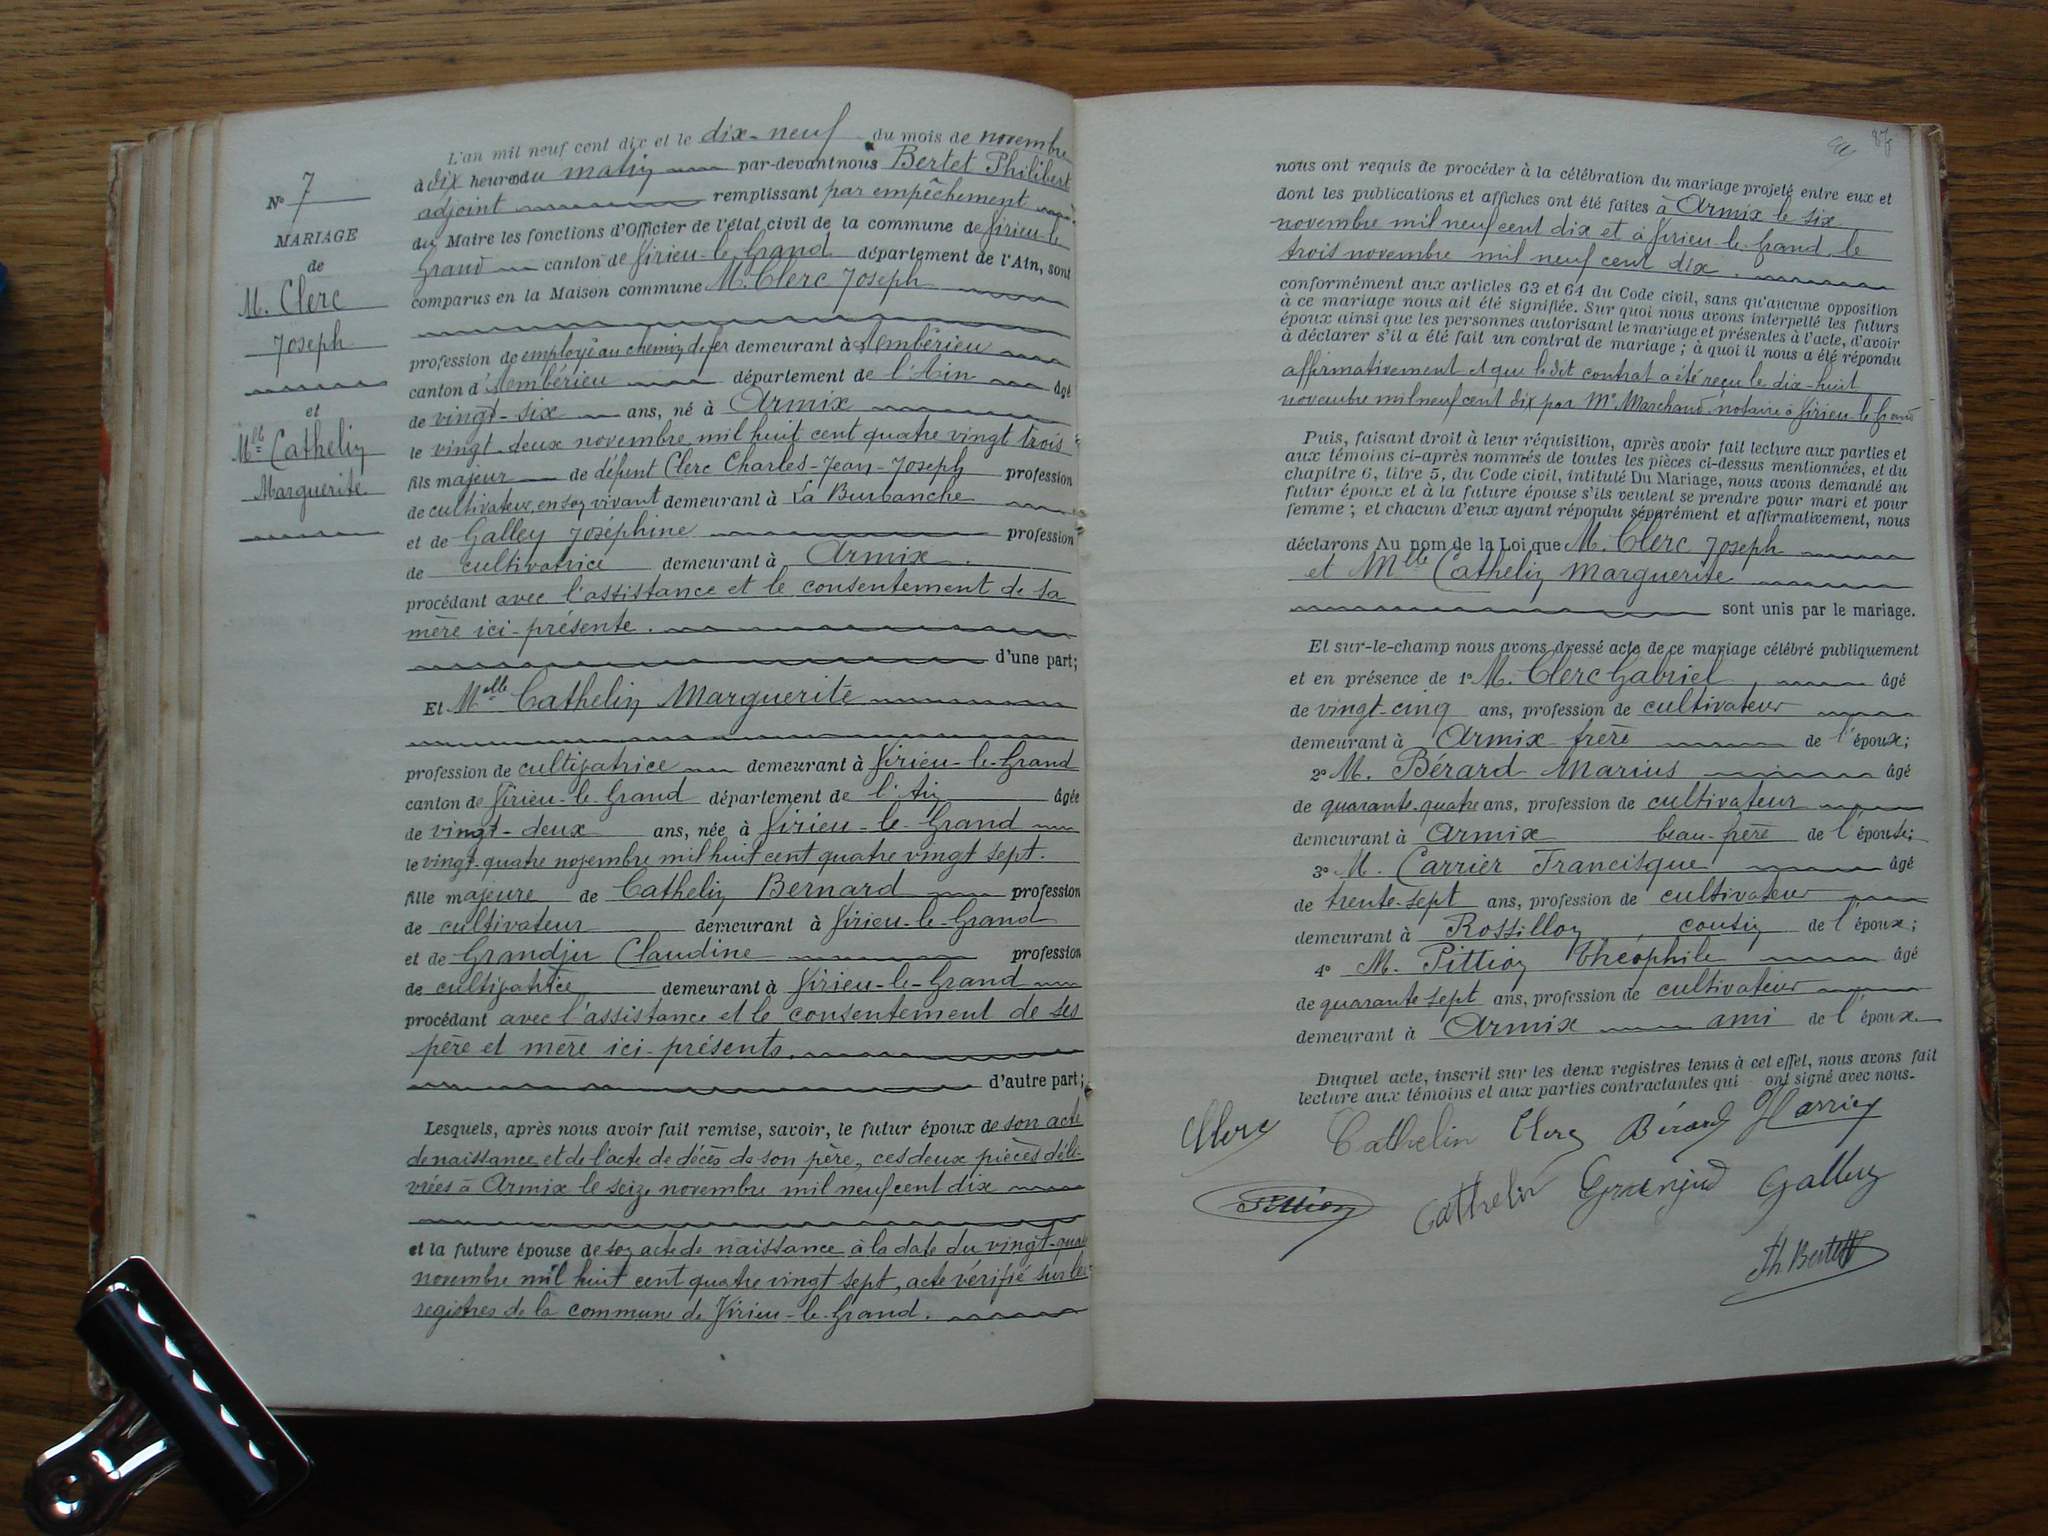 N° 7
MARIAGE
de
M. Clerc
Joseph
et
Mlle Cathelin
Marguerite
L'an mil neuf cent dix et le dix-neuf du mois de novembre
à dix heures du matin par-devant nous Bertet Philibert
adjoint remplissant par empêchement
du Maire les fonctions d'Officier de l'état civil de la commune de Virieu-le-
Grand canton de Virieu-le-Grand département de l'Ain, sont
comparus en la Maison commune M. Clerc Joseph
profession de employé au chemin de fer demeurant à Ambérieu
canton d'Ambérieu département de l'Ain âgé
de vingt-six ans, né à Armix
le vingt-deux novembre mil huit cent quatre vingt trois
fils majeur de défunt Clerc Charles-Jean-Joseph profession
de cultivateur, en son vivant demeurant à La Burbanche
et de Galley Joséphine profession
de cultivatrice demeurant à Armix.
procédant avec l'assistance et le consentement de sa
mère ici-présente.
d'une part;
Et Melle Cathelin Marguerite
profession de cultivatrice demeurant à Virieu-le-Grand
canton de Virieu-le-Grand département de l'Ain âgée
de vingt-deux ans, née à Virieu-le-Grand
le vingt-quatre novembre mil huit cent quatre vingt sept.
fille majeure de Cathelin Bernard profession
de cultivateur demeurant à Virieu-le-Grand
et de Grandju Claudine profession
de cultivatrice demeurant à Virieu-le-Grand
procédant avec l'assistance et le consentement de ses
père et mère ici-présents.
d'autre part;
Lesquels, après nous avoir fait remise, savoir, le futur époux de son acte
de naissance et de l'acte de décès de son père, ces deux pièces déli-
vrées à Armix le seize novembre mil neuf cent dix
et la future épouse de son acte de naissance à la date du vingt-quatre
novembre mil huit cent quatre vingt sept, acte vérifié sur les
registres de la commune de Virieu-le-Grand.
87
nous ont requis de procéder à la célébration du mariage projeté entre eux et
dont les publications et affiches ont été faites à Armix le six
novembre mil neuf cent dix et à Virieu-le-Grand le
trois novembre mil neuf cent dix.
conformément aux articles 63 et 64 du Code civil, sans qu'aucune opposition
à ce mariage nous ait été signifiée. Sur quoi nous avons interpellé les futurs
époux ainsi que les personnes autorisant le mariage et présentes à l'acte, d'avoir
à déclarer s'il a été fait un contrat de mariage; à quoi il nous a été répondu
affirmativement et que le dit contrat a été reçu le dix-huit
novembre mil neuf cent dix par Me Marchand notaire à Virieu-le-Grand
Puis, faisant droit à leur réquisition, après avoir fait lecture aux parties et
aux témoins ci-après nommés de toutes les pièces ci-dessus mentionnées, et du
chapitre 6, titre 5, du Code civil, intitulé Du Mariage, nous avons demandé au
futur époux et à la future épouse s'ils veulent se prendre pour mari et pour
femme; et chacun d'eux ayant répondu séparément et affirmativement, nous
déclarons Au nom de la Loi que M. Clerc Joseph
et Mlle Cathelin Marguerite
sont unis par le mariage.
Et sur-le-champ nous avons dressé acte de ce mariage célébré publiquement
et en présence de 1° M. Clerc Gabriel âgé
de vingt-cinq ans, profession de cultivateur
demeurant à Armix frère de l'époux;
2° M. Bérard Marius âgé
de quarante-quatre ans, profession de cultivateur
demeurant à Armix beau-frère de l'épouse;
3° M. Carrier Francisque âgé
de trente-sept ans, profession de cultivateur
demeurant à Rossillon, cousin de l'époux;
4° M. Pittion Théophile âgé
de quarante sept ans, profession de cultivateur
demeurant à Armix ami de l'époux.
Duquel acte, inscrit sur les deux registres tenus à cet effet, nous avons fait
lecture aux témoins et aux parties contractantes qui ont signé avec nous.
Clerc Cathelin Clerc Bérard Carrier
Pittion Cathelin Granjud Galley
Ph. Bertet